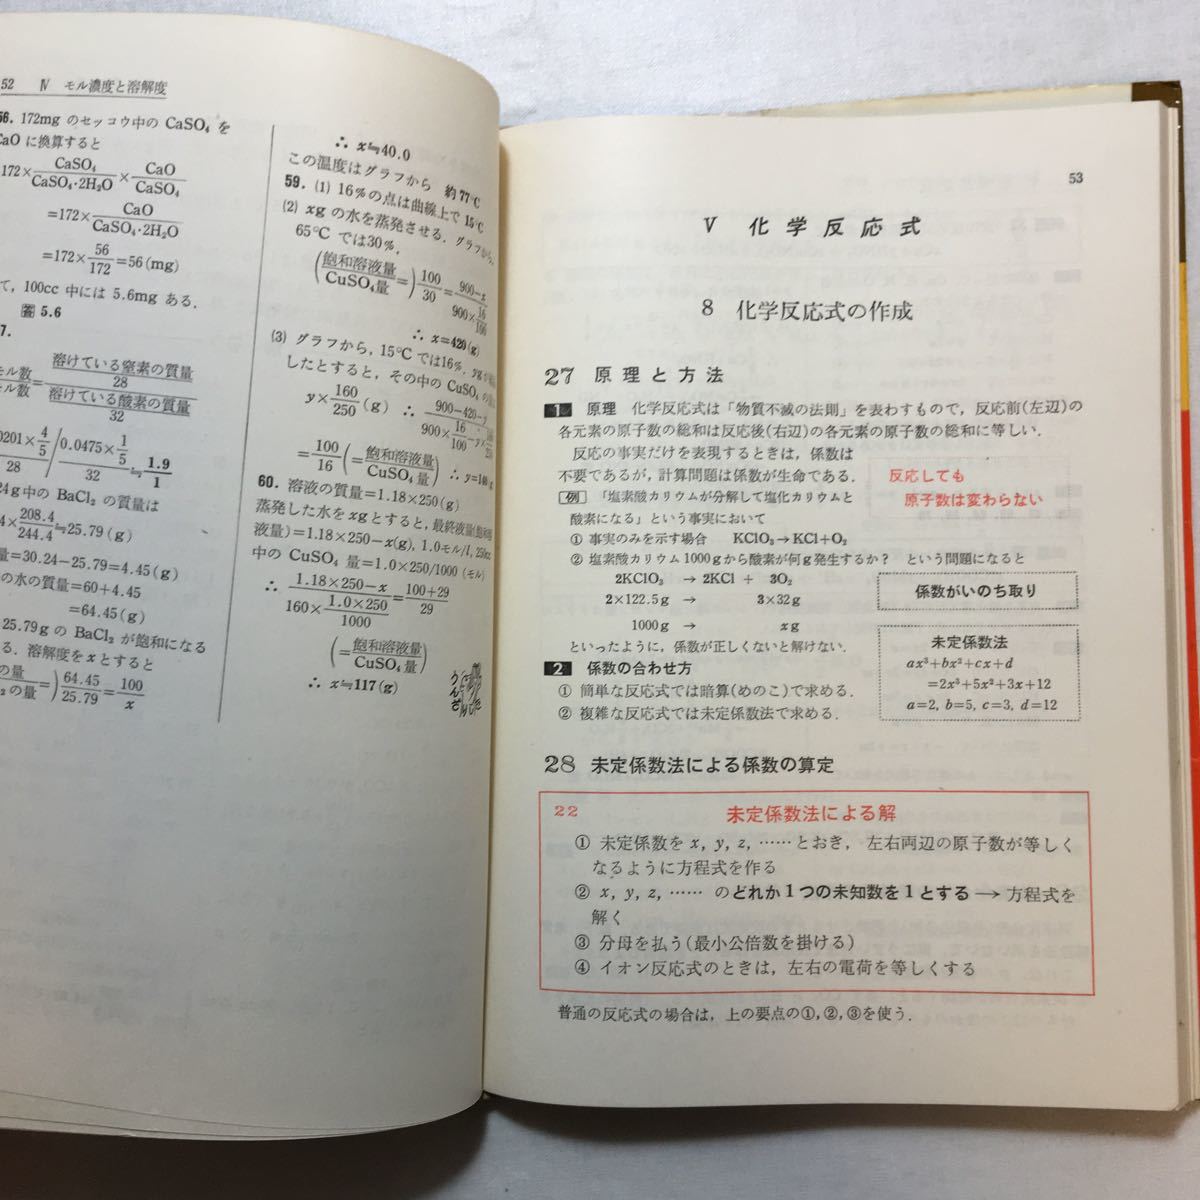 52 Ⅳ モル濃度と溶解度
56. 172mg のセッコウ中の CaSO₄ を
CaO に換算すると
172×CaSO₄/CaSO₄·2H₂O×CaO/CaSO₄
=172×CaO/CaSO₄·2H₂O
=172×56/172=56(mg)
て, 100cc 中には 5.6mg ある.
答 5.6
7.
モル数/モル数=溶けている窒素の質量/28/溶けている酸素の質量/32
0201×4/5/28/0.0475×1/5/32≒1.9/1
24g中の BaCl₂ の質量は
4×208.4/244.4≒25.79(g)
量=30.24-25.79=4.45(g)
の水の質量=60+4.45
=64.45(g)
25.79gの BaCl₂ が飽和になる
る. 溶解度をxとすると
の量/₂の量=)64.45/25.79=100/x
∴ x≒40.0
この温度はグラフから 約77℃
59. (1) 16%の点は曲線上で 15℃
(2) xg の水を蒸発させる. グラフから,
65℃では30%,
(飽和溶液量/CuSO₄量=)100/30=900-x/900×16/100
∴ x=420(g)
(3) グラフから, 15℃では16%, yg
したとすると, その中の CuSO₄の
y×160/250(g) ∴ 900-420-y/900×16/100-y×
=100/16(=飽和溶液量/CuSO₄量) ∴ y=
60. 溶液の質量=1.18×250(g)
蒸発した水をxgとすると, 最終液量(飽和溶
液量)=1.18×250-x(g), 1.0モル/l, 250cc
中の CuSO₄ 量=1.0×250/1000 (モル)
∴ 1.18×250-x/160×1.0×250/1000=100+29/29
(=飽和溶液量/CuSO₄量)
∴ x≒117(g)
53
Ⅴ 化学反応式
8 化学反応式の作成
27 原理と方法
1 原理 化学反応式は「物質不滅の法則」を表わすもので, 反応前(左辺)の
各元素の原子数の総和は反応後(右辺)の各元素の原子数の総和に等しい.
反応の事実だけを表現するときは, 係数は
不要であるが, 計算問題は係数が生命である.
反応しても
原子数は変わらない
例 「塩素酸カリウムが分解して塩化カリウムと
酸素になる」という事実において
① 事実のみを示す場合 KClO₃→KCl+O₂
② 塩素酸カリウム1000gから酸素が何g発生するか? という問題になると
2KClO₃ → 2KCl + 3O₂
2×122.5g → 3×32g
1000g → xg
係数がいのち取り
といったように, 係数が正しくないと解けない.
2 係数の合わせ方
① 簡単な反応式では暗算(めのこ)で求める.
② 複雑な反応式では未定係数法で求める.
未定係数法
ax³+bx²+cx+d
=2x³+5x²+3x+12
a=2, b=5, c=3, d=12
28 未定係数法による係数の算定
22 未定係数法による解
① 未定係数を x, y, z, ……とおき, 左右両辺の原子数が等しく
なるように方程式を作る
② x, y, z, …… のどれか1つの未知数を1とする→方程式を
解く
③ 分母を払う(最小公倍数を掛ける)
④ イオン反応式のときは, 左右の電荷を等しくする
普通の反応式の場合は, 上の要点の①, ②, ③を使う.